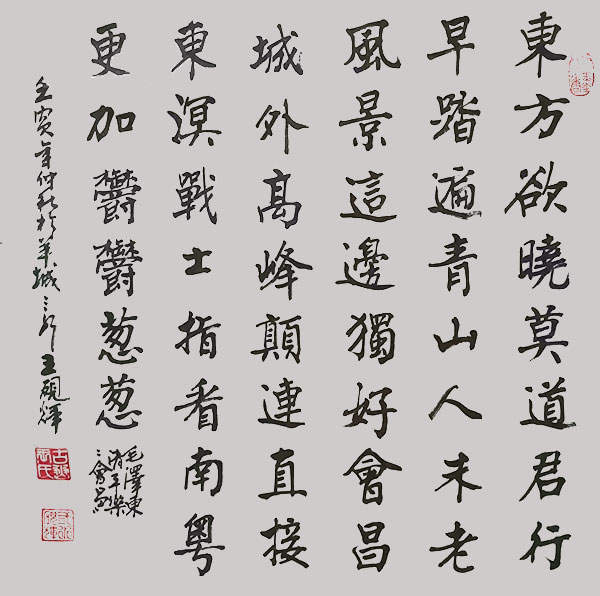 東方欲曉莫道君行
早踏遍青山人未老
風景這邊獨好會昌
城外高峰顛連直接
東溟戰士指看南粵
更加鬱鬱葱葱
毛澤東
清平樂
會昌
壬寅年仲秋於羊城王硯輝